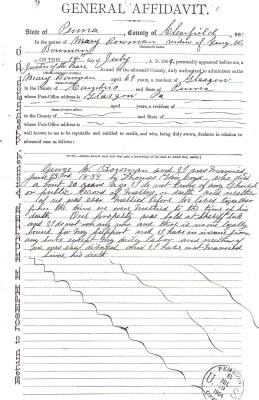 GENERAL AFFIDAVIT.
State of Penna County of Clearfield, ss:
In the matter of Mary Bowman widow of George W.
Bowman
ON THIS 14th day of July, A. D. 1904, personally appeared before me, a
Justice of the Peace in and for the aforesaid County, duly authorized to administer oaths
Mary Bowman aged 69 years, a resident of Glasgow
in the County of Cambria and State of Penna
whose Post-office address is Glasgow Pa
aged years, a resident of
in the County of and State of
whose Post-office address is
well known to me to be reputable and entitled to credit, and who, being duly sworn, declares in relation
to aforesaid case as follows:
George W. Bowman and I was married
June 23rd 1859 by Thomas Van , who died
about 20 years ago I do not know of any Church
or public record of births or death and neither
of us was ever married before We lived together
from the time we were married to the time of his
death Our property was sold at Sheriff Sale
and I do not own any now and there is no one legally
bound for my support and I have no income from
any source except my daily labor and neither of
us was ever divorced and I have not remarried
since his death
Washington
Return to JOSEPH H. HUNTER, Attorney,
PENSION
U.S.
JUL
1904